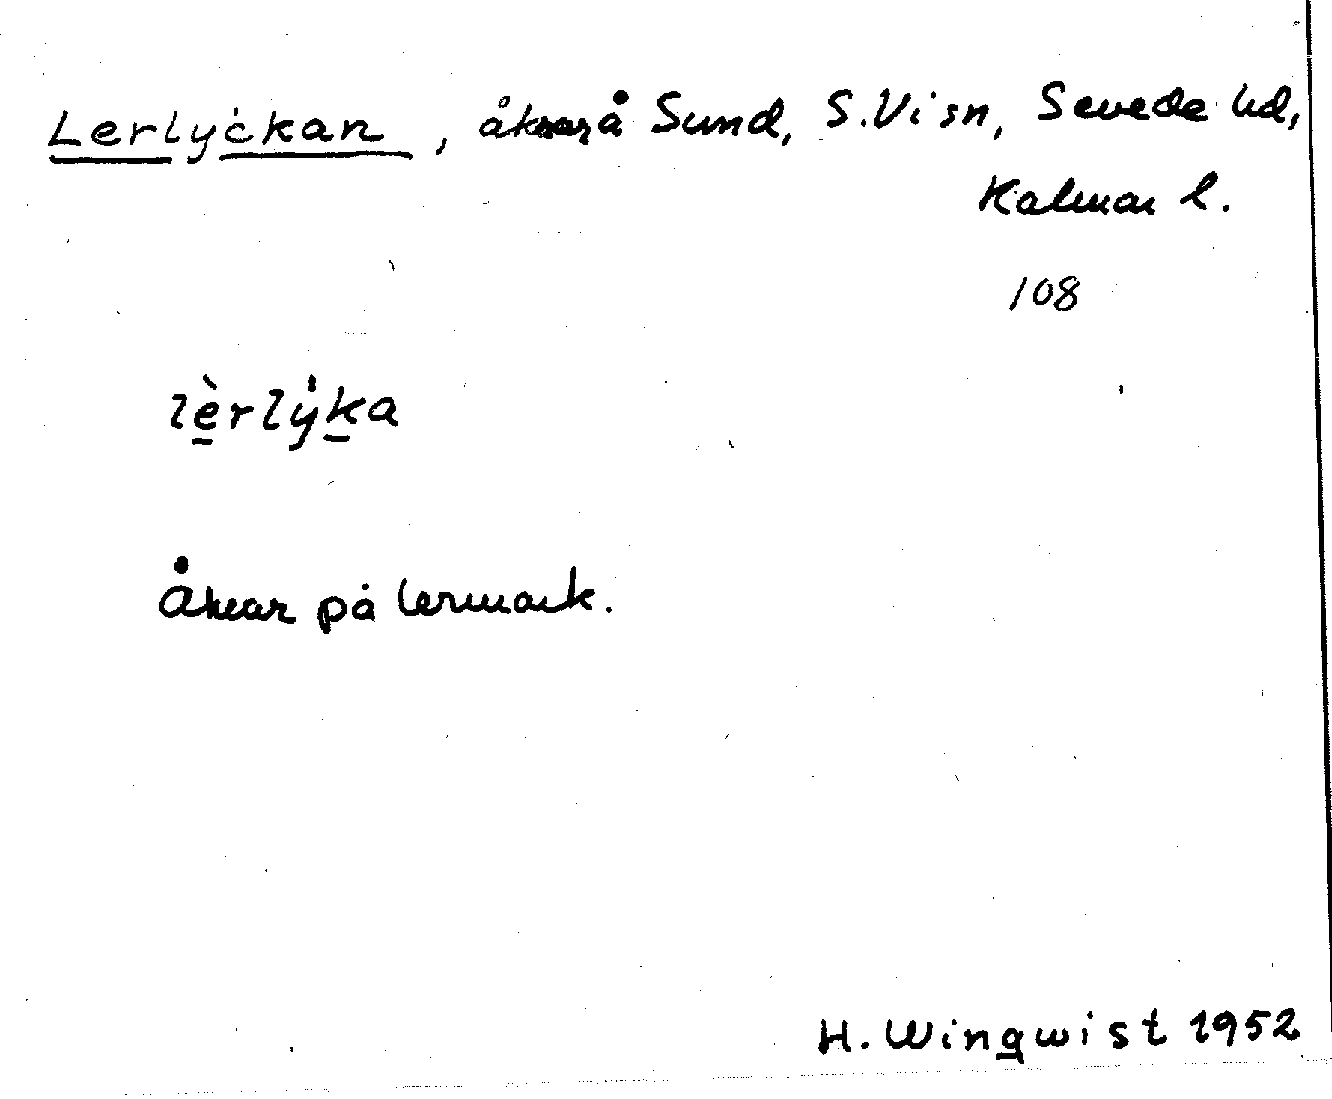 Lerlyckan, åkrar å Sund, S. Vi sn, Sevede hd,
Kalmar l.
108
lèrlýka
Åkrar på lermark.
H. Winqwist 1952